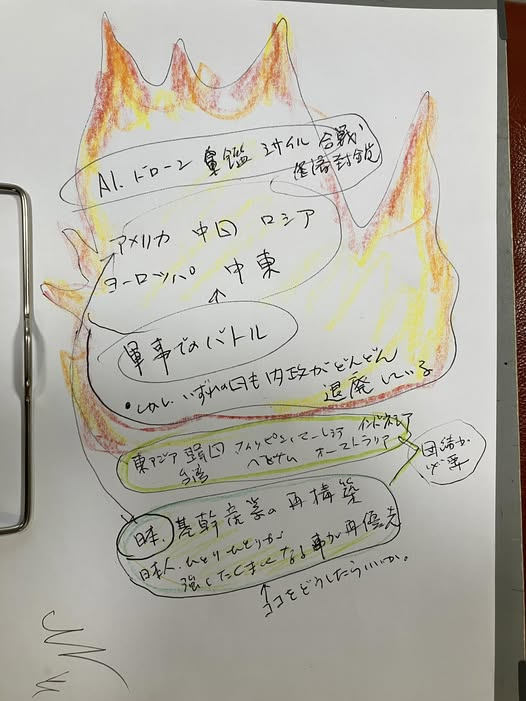 AI. ドローン 軍艦 ミサイル 合戦
海峡封鎖
アメリカ 中国 ロシア
ヨーロッパ 中東
軍事でのバトル
・しかし いずれの国も内政がどんどん
退廃している
東アジア 韓国 フィリピン マレーシア インドネシア
台湾 ベトナム オーストラリア
団結が
必要
日本. 基幹産業の再構築
日本人.ひとりひとりが
強くたくましくなる事が再優先
↑
ココをどうしたらいいか。